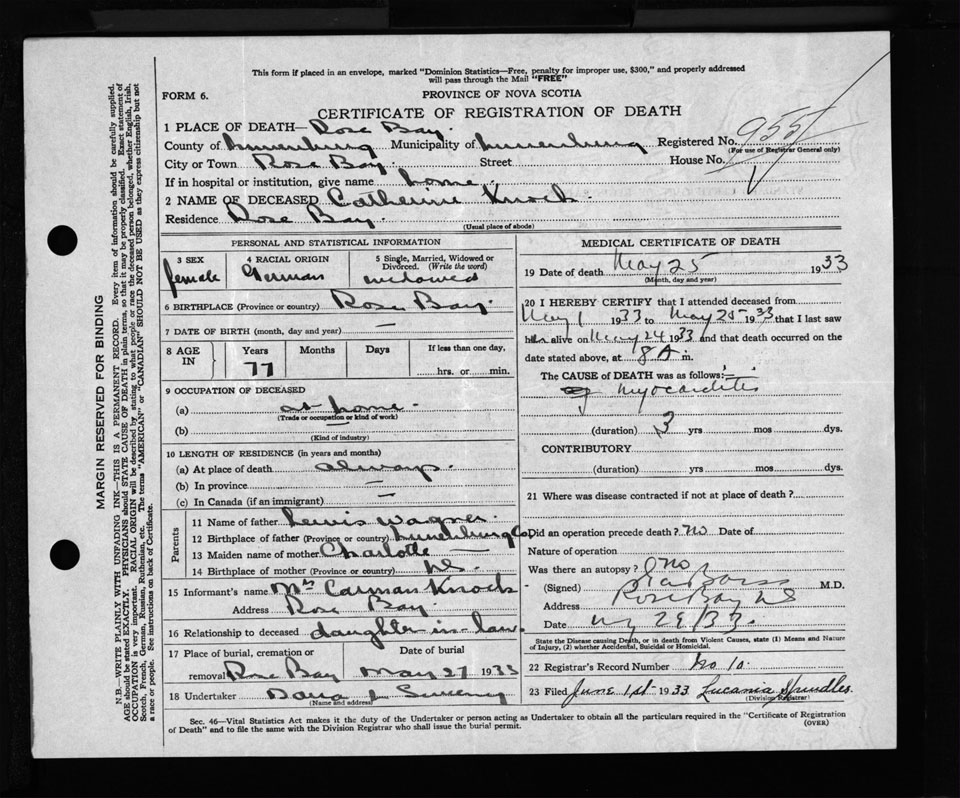 This form if placed in an envelope, marked "Dominion Statistics—Free, penalty for improper use, $300," and properly addressed
will pass through the Mail "FREE"
FORM 6.
PROVINCE OF NOVA SCOTIA
CERTIFICATE OF REGISTRATION OF DEATH
1 PLACE OF DEATH— Rose Bay.
County of Lunenburg Municipality of Lunenburg Registered No. 955
(For use of Registrar General only)
City or Town Rose Bay Street House No.
If in hospital or institution, give name home.
2 NAME OF DECEASED Catherine Knock.
Residence Rose Bay.
(Usual place of abode)
PERSONAL AND STATISTICAL INFORMATION
3 SEX 4 RACIAL ORIGIN 5 Single, Married, Widowed or
Divorced. (Write the word)
female German widowed
6 BIRTHPLACE (Province or country) Rose Bay.
7 DATE OF BIRTH (month, day and year) —
8 AGE IN Years Months Days If less than one day,
77 hrs. or min.
9 OCCUPATION OF DECEASED
(a) at home.
(Trade or occupation or kind of work)
(b)
(Kind of industry)
10 LENGTH OF RESIDENCE (in years and months)
(a) At place of death always.
(b) In province —
(c) In Canada (if an immigrant) —
Parents
11 Name of father Lewis Wagner.
12 Birthplace of father (Province or country) Lunenburg Co
13 Maiden name of mother Charlotte —
14 Birthplace of mother (Province or country) N.S.
15 Informant's name Mrs Carman Knock
Address Rose Bay.
16 Relationship to deceased daughter-in-law.
17 Place of burial, cremation or Date of burial
removal Rose Bay May 27 1933
18 Undertaker
(Name and address)
MEDICAL CERTIFICATE OF DEATH
19 Date of death May 25 1933
(Month, day and year)
20 I HEREBY CERTIFY that I attended deceased from
May 1 1933 to May 25 1933 that I last saw
her alive on May 24 1933 and that death occurred on the
date stated above, at 8 A m.
The CAUSE of DEATH was as follows:
myocarditis
(duration) 3 yrs mos dys.
CONTRIBUTORY:
(duration) yrs mos dys.
21 Where was disease contracted if not at place of death?
Did an operation precede death? No Date of
Nature of operation
Was there an autopsy? No
(Signed) M.D.
Address Rose Bay NS
Date
State the Disease causing Death, or in death from Violent Causes, state (1) Means and Nature
of Injury, (2) whether Accidental, Suicidal or Homicidal.
22 Registrar's Record Number No 10.
23 Filed June 1st 1933 Lucania Spindler.
(Division Registrar)
Sec. 46—Vital Statistics Act makes it the duty of the Undertaker or person acting as Undertaker to obtain all the particulars required in the "Certificate of Registration
of Death" and to file the same with the Division Registrar who shall issue the burial permit.
(OVER)
MARGIN RESERVED FOR BINDING
N.B.—WRITE PLAINLY WITH UNFADING INK—THIS IS A PERMANENT RECORD. Every item of information should be carefully supplied.
AGE should be stated EXACTLY. PHYSICIANS should STATE CAUSE OF DEATH in plain terms, so that it may be properly classified. Exact statement of
OCCUPATION is very important. RACIAL ORIGIN will be described by stating to what people or race the deceased person belonged, whether English, Irish,
Scotch, French, German, Russian, Ruthenian, etc. The terms "AMERICAN" or "CANADIAN" SHOULD NOT BE USED as they express citizenship but not
a race or people. See instructions on back of Certificate.